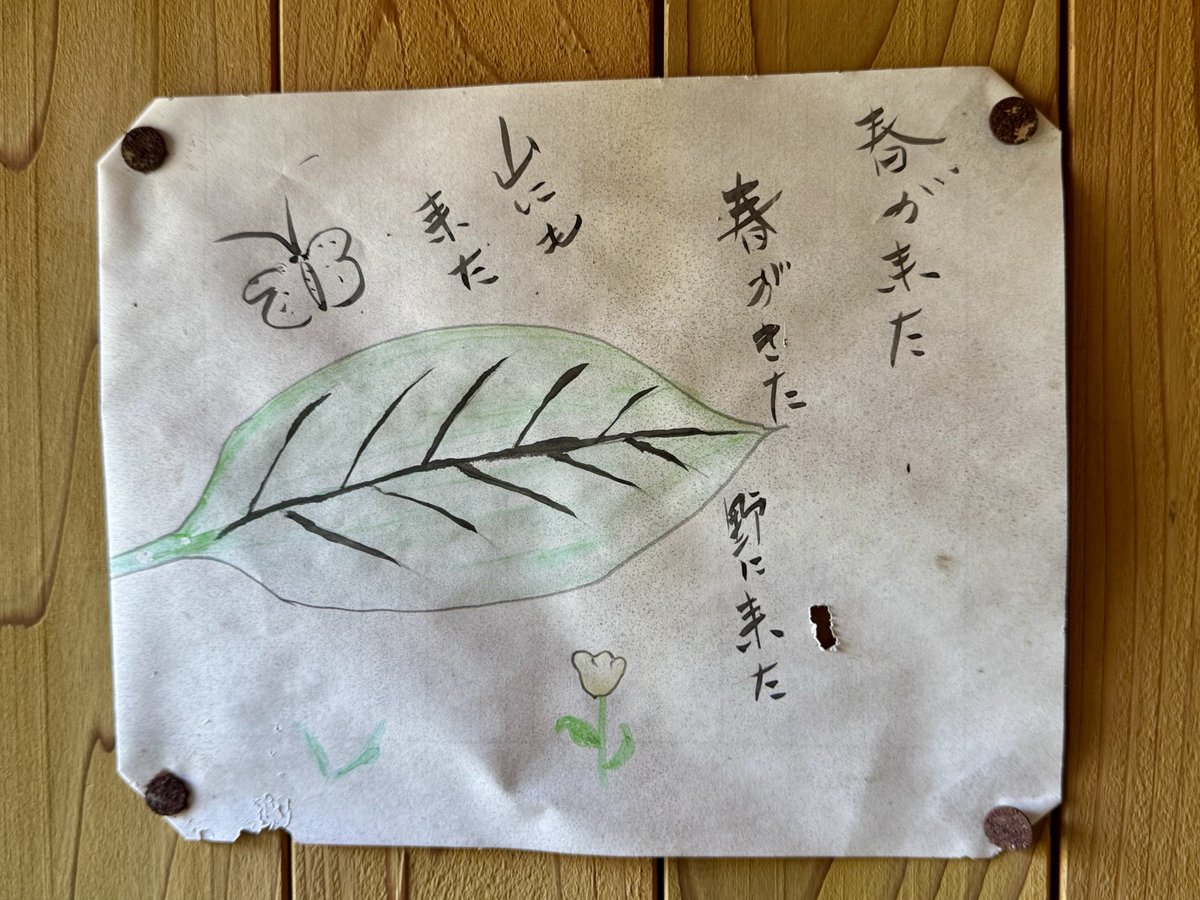 春が来た
春がきた
野に来た
山にも
来た